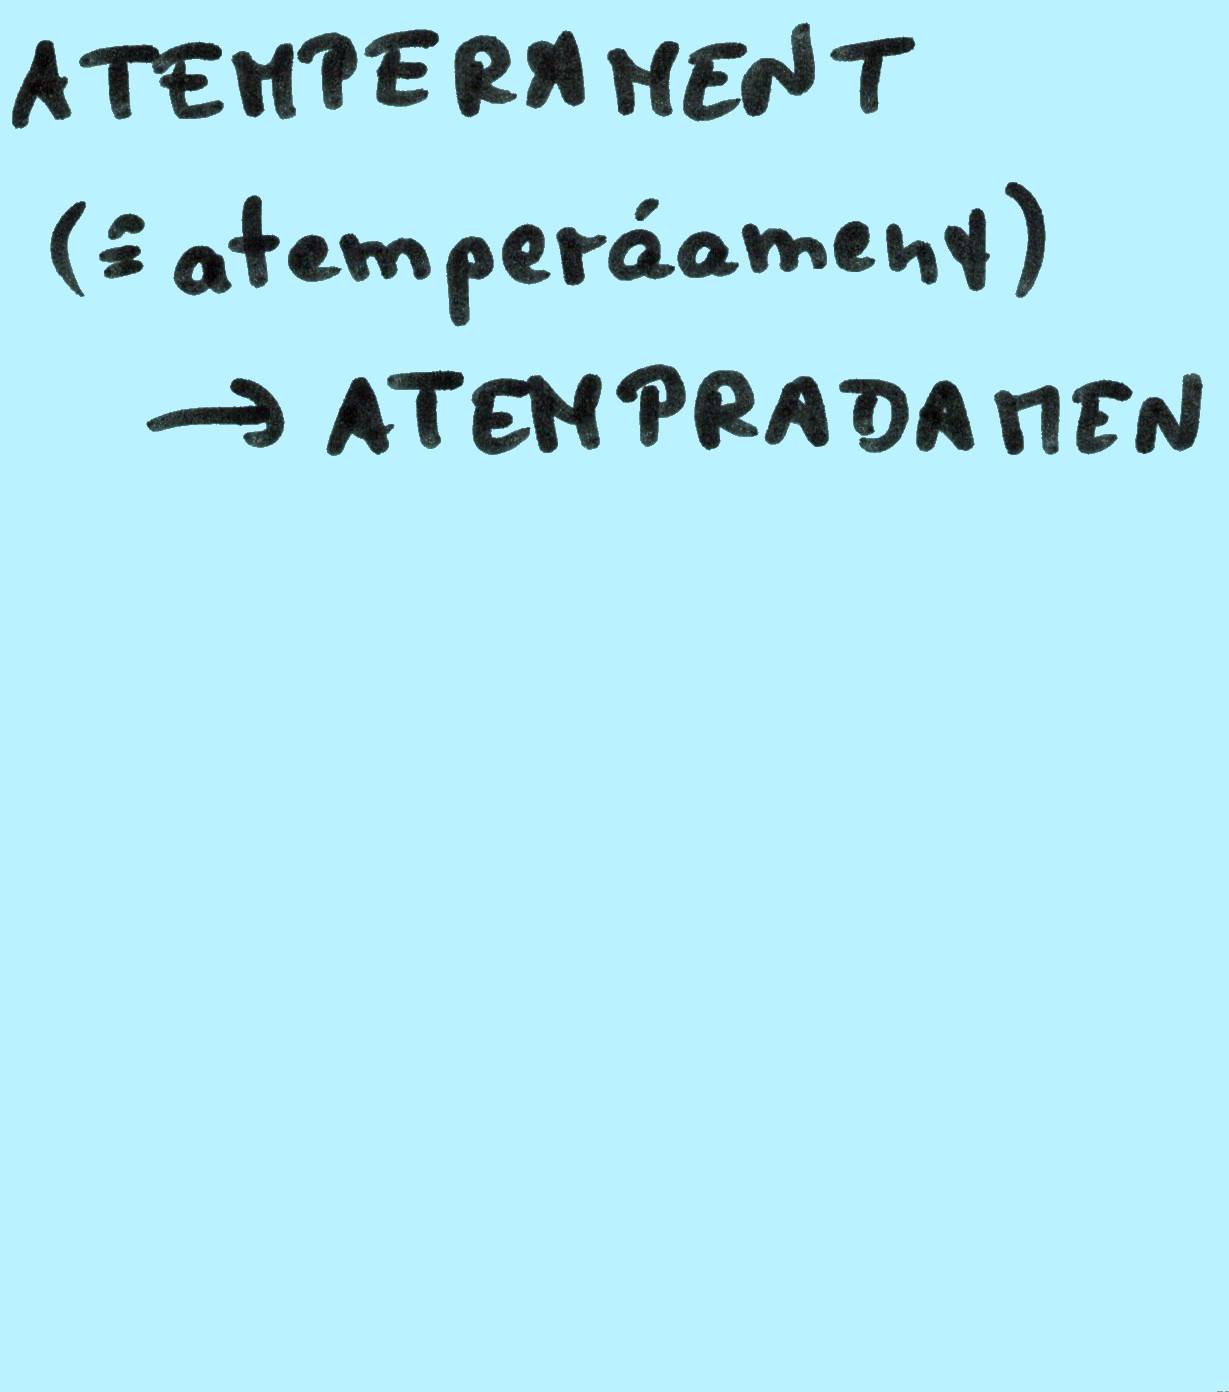 ATEMPERAMENT
(≘ atemperáament)
→ ATEMPRADAMEN